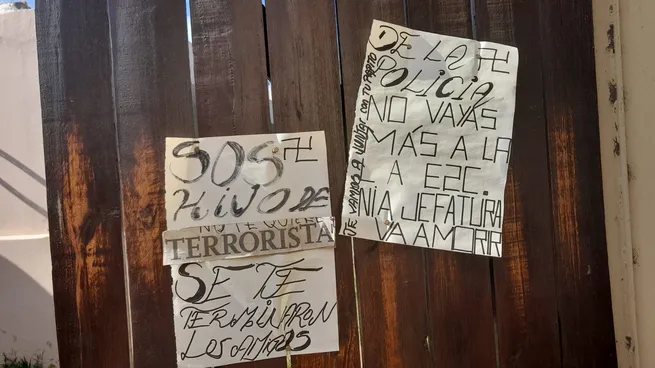 SOS 卐
HIJO DE
NO TE QUIERE
TERRORISTA
SE TE
TERMINARON
LOS AMIGOS
DE LA 卐
POLICIA
NO VAYAS
MÁS A LA
A E2C.
NIA JEFATURA
VA A MORIR
TE VAMOS A JUNTAR CON TU PAPITO